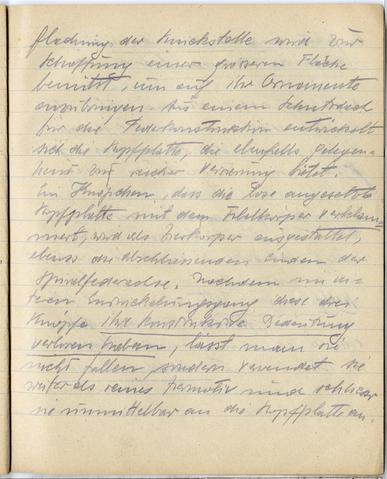 flachung der Druckstelle wird zur
Schaffung einer grösseren Fläche
benützt, um auf ihr Ornamente
anzubringen. Aus einem Schutzdach
für die Federkonstruktion entwickelt
sich die Kopfplatte, die ebenfalls gelegen-
heit zur reicher Verzierung bietet.
Ein Knöpfchen, dass die lose angesetzte
Kopfplatte mit dem Fibelkörper verklam-
mert, wird als Zierkörper ausgestaltet,
ebenso die abschliessenden Enden der
Spiralfederachse. Nachdem im wei-
teren Entwickelungsgang diese drei
Knöpfe ihre konstruktive Bedeutung
verloren haben, lässt man sie
nicht fallen, sondern verwendet sie
weiter als reines Ziermotiv und
sie unmittelbar an die Kopfplatte an.